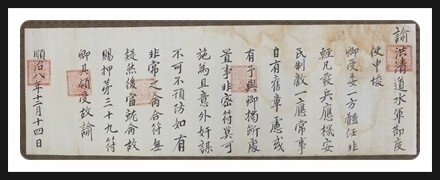 諭洪清道水軍節度
使申埈
卿受委一方體任非
輕凡發兵應機安
民制敵一應常事
自有舊章慮或
有予與卿獨斷處
置事非密符莫可
施爲且意外奸謀
不可不預防如有
非常之命合符無
疑然後當就命故
賜押第三十九符
卿其領受故諭
順治八年十二月十四日